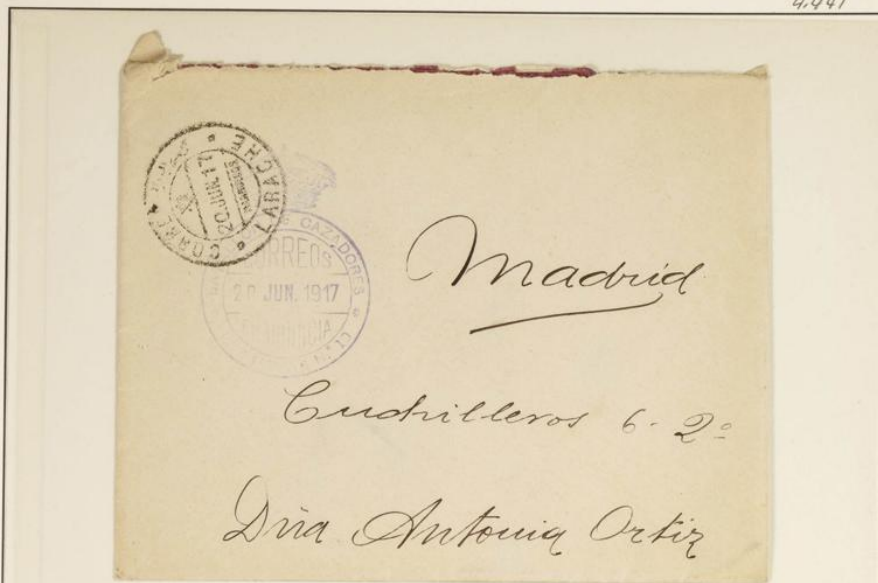 4,441
CORREOS LARACHE
20.JUN.17
DE CAZADORES
CORREOS
20 JUN. 1917
FRANQUICIA
Madrid
Cuchilleros 6-2º
Dña Antonia Ortiz